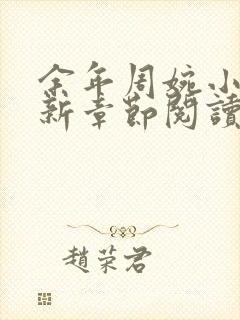 余年周婉小
新章節閱讀
趙荣君